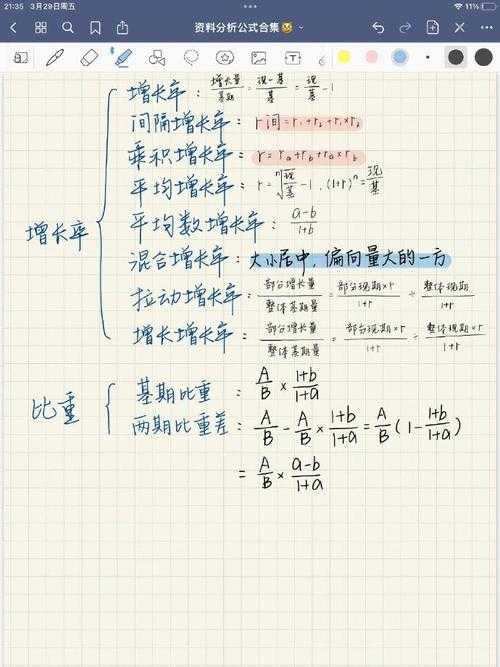 21:35 3月29日周五 11%
资料分析公式合集
增长率
增长率：增长量/基期 = 现-基/基 = 现/基 - 1
间隔增长率：r间=r₁+r₂+r₁×r₂
乘积增长率：r=rₐ+r_b+rₐ×r_b
平均增长率：r=ⁿ√现/基 -1，(1+r)ⁿ=现/基
平均数增长率：a-b/1+b
混合增长率：大小居中，偏向量大的一方
拉动增长率：部分增长量/整体基期量 = 部分现期×r/1+r ÷ 整体现期/1+r
增长增长率：部分增长量/整体基期量 = 部分现期×r/1+r ÷ 整体现期/1+r
比重
基期比重：A/B × 1+b/1+a
两期比重差：A/B - A/B × 1+b/1+a = A/B (1 - 1+b/1+a)
= A/B × a-b/1+a